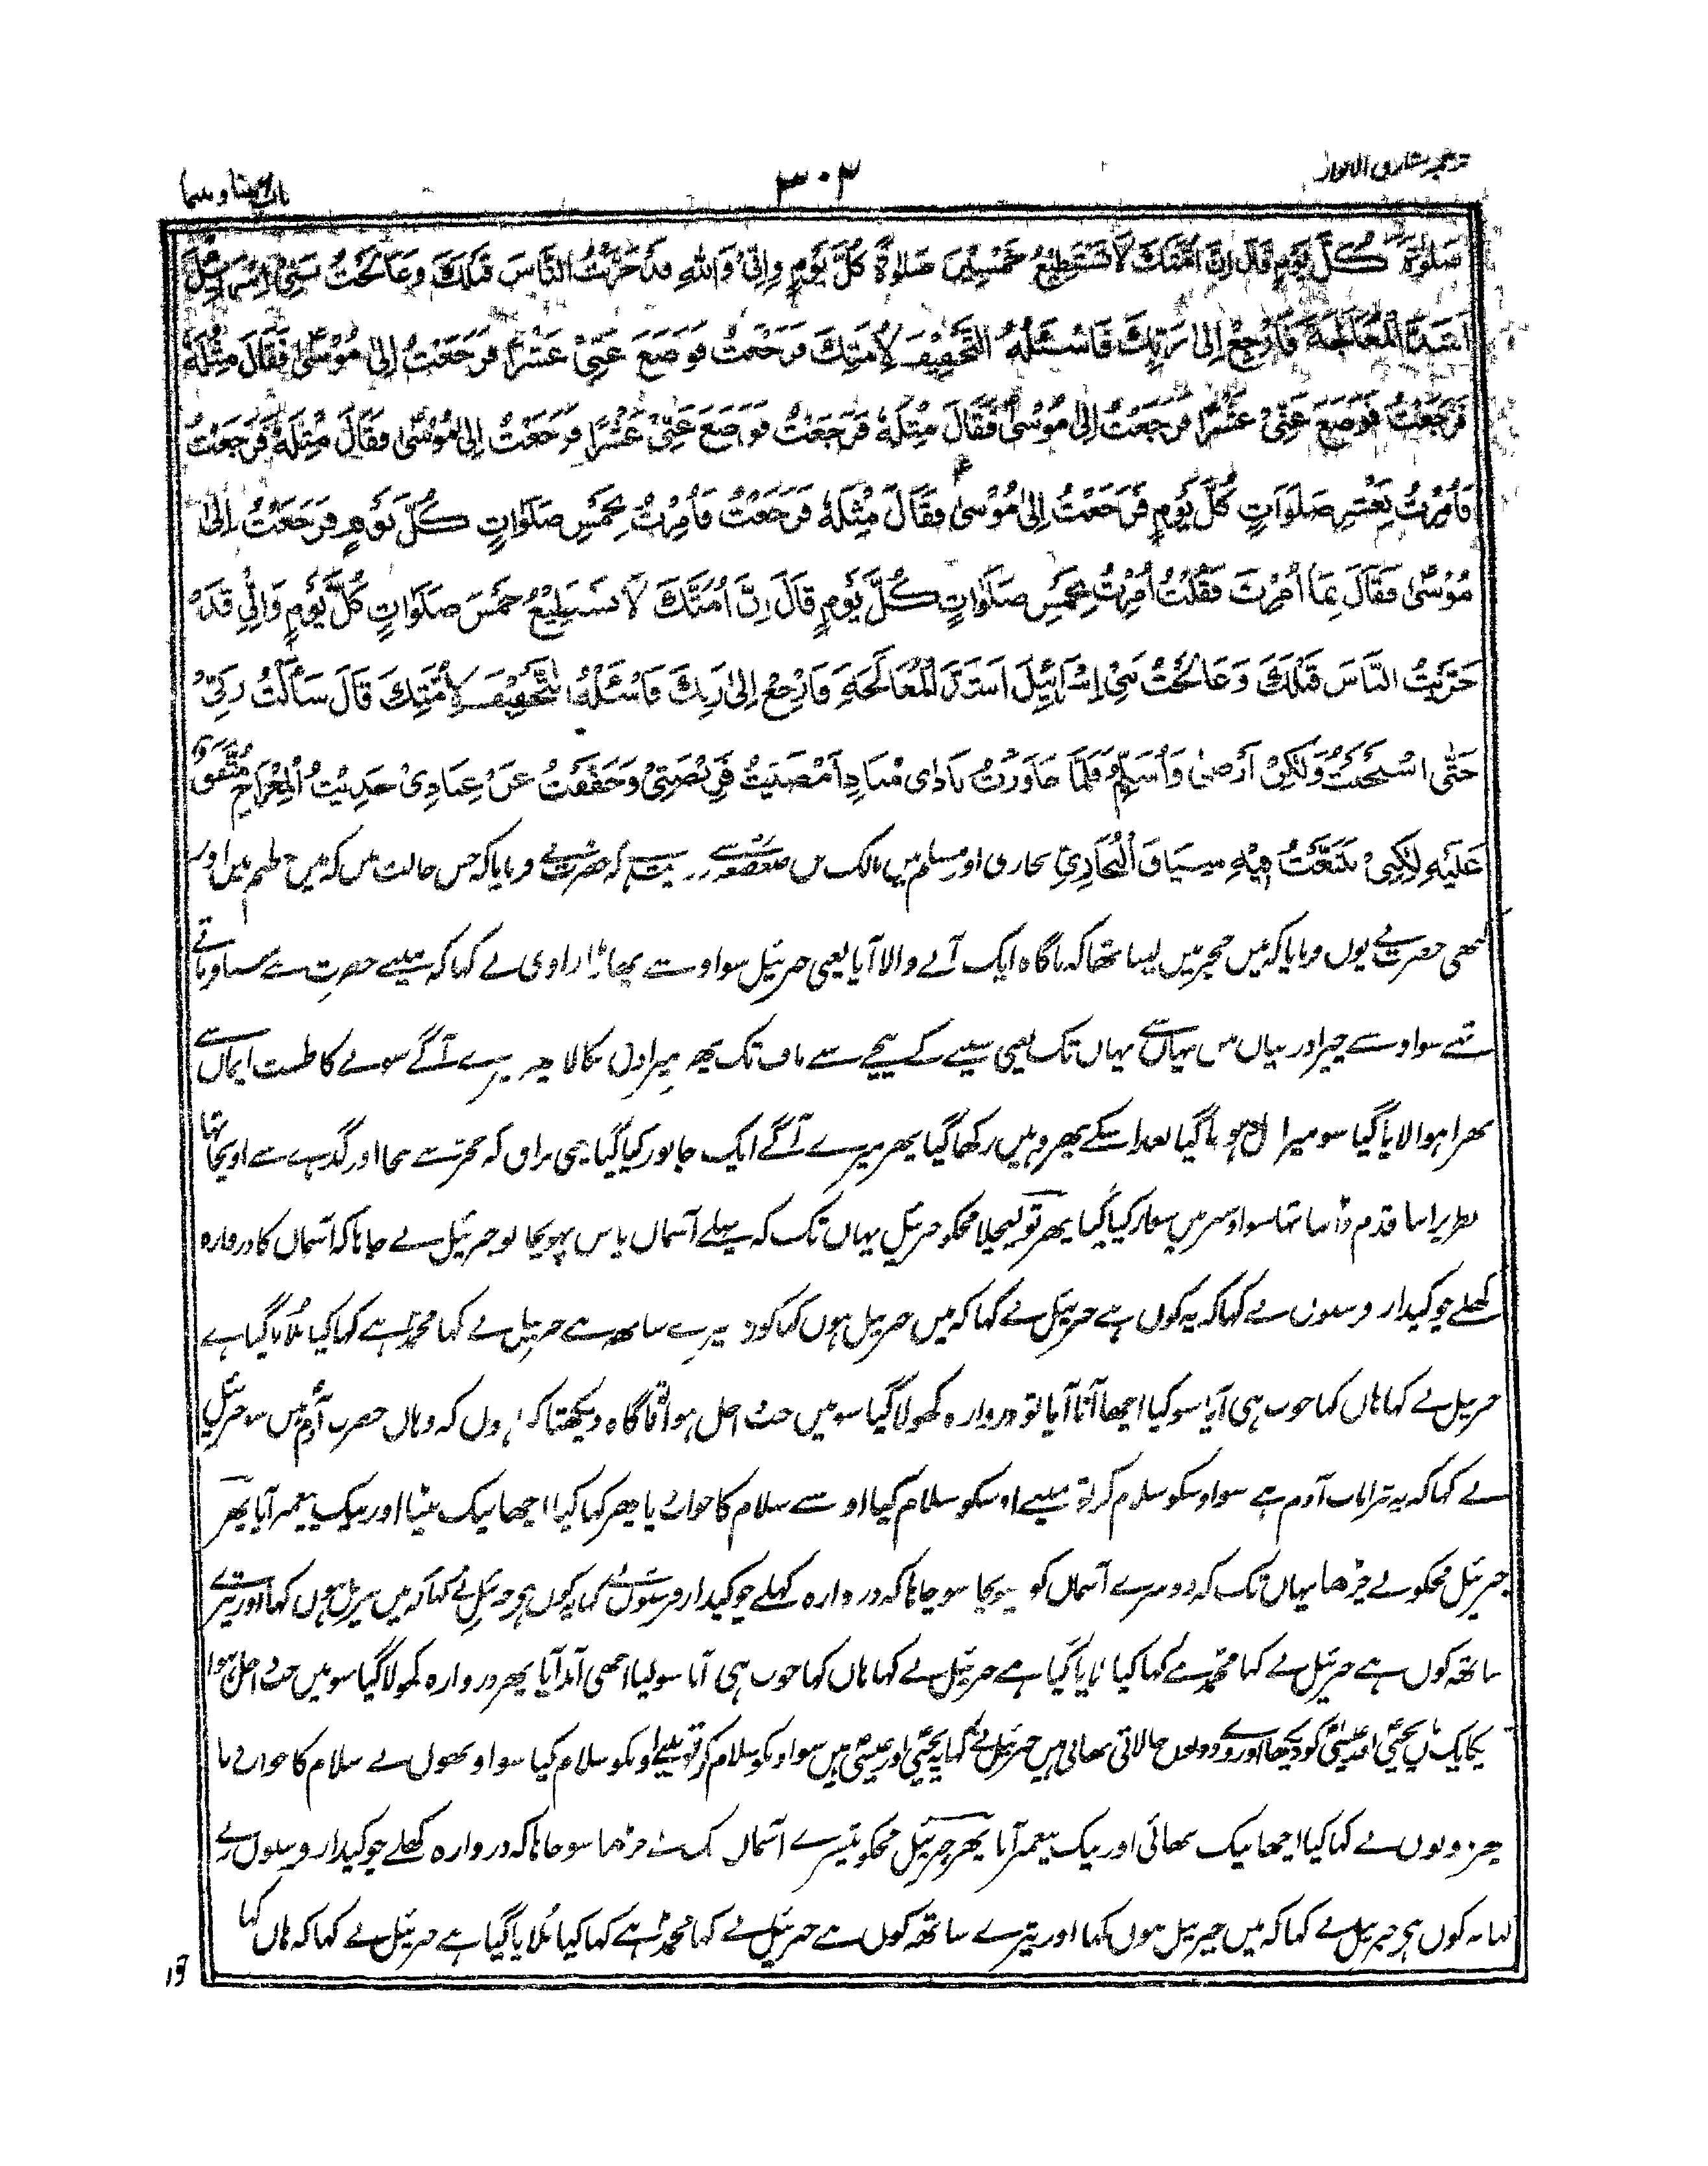 ترجمہ مشارق الانوار
۳۰۳
باب
صَلٰوةً كُلَّ يَوْمٍ قَالَ اِنَّ اُمَّتَكَ لَا تَسْتَطِيْعُ خَمْسِيْنَ صَلٰوةً كُلَّ يَوْمٍ وَاِنِّيْ وَاللّٰهِ قَدْ جَرَّبْتُ النَّاسَ قَبْلَكَ وَعَالَجْتُ بَنِيْ اِسْرَائِيْلَ
اَشَدَّ الْمُعَالَجَةِ فَارْجِعْ اِلٰى رَبِّكَ فَاسْئَلْهُ التَّخْفِيْفَ لِاُمَّتِكَ فَرَجَعْتُ فَوَضَعَ عَنِّيْ عَشْرًا فَرَجَعْتُ اِلٰى مُوْسٰى فَقَالَ مِثْلَهٗ
فَرَجَعْتُ فَوَضَعَ عَنِّيْ عَشْرًا فَرَجَعْتُ اِلٰى مُوْسٰى فَقَالَ مِثْلَهٗ فَرَجَعْتُ فَوَضَعَ عَنِّيْ عَشْرًا فَرَجَعْتُ اِلٰى مُوْسٰى فَقَالَ مِثْلَهٗ فَرَجَعْتُ
فَاُمِرْتُ بِعَشْرِ صَلَوَاتٍ كُلَّ يَوْمٍ فَرَجَعْتُ اِلٰى مُوْسٰى فَقَالَ مِثْلَهٗ فَرَجَعْتُ فَاُمِرْتُ بِخَمْسِ صَلَوَاتٍ كُلَّ يَوْمٍ فَرَجَعْتُ اِلٰى
مُوْسٰى فَقَالَ بِمَا اُمِرْتَ فَقُلْتُ اُمِرْتُ بِخَمْسِ صَلَوَاتٍ كُلَّ يَوْمٍ قَالَ اِنَّ اُمَّتَكَ لَا تَسْتَطِيْعُ خَمْسَ صَلَوَاتٍ كُلَّ يَوْمٍ وَاِنِّي قَدْ
جَرَّبْتُ النَّاسَ قَبْلَكَ وَعَالَجْتُ بَنِيْ اِسْرَائِيْلَ اَشَدَّ الْمُعَالَجَةِ فَارْجِعْ اِلٰى رَبِّكَ فَاسْئَلْهُ التَّخْفِيْفَ لِاُمَّتِكَ قَالَ سَاَلْتُ رَبِّيْ
حَتَّى اسْتَحْيَيْتُ وَلٰكِنْ اَرْضٰى وَاُسَلِّمُ فَلَمَّا جَاوَزْتُ نَادٰى مُنَادٍ اَمْضَيْتُ فَرِيْضَتِيْ وَخَفَّفْتُ عَنْ عِبَادِيْ حَدِيْثُ الْمِعْرَاجِ مُتَّفَقٌ
عَلَيْهِ لٰكِنِّيْ تَتَبَّعْتُ فِيْهِ سِيَاقَ الْبُخَارِيِّ بخاری اور مسلم میں مالک بن صعصعہ سے روایت ہے کہ حضرت نے فرمایا کہ جس حالت میں کہ میں حطیم میں اور
کبھی حضرت نے یوں فرمایا کہ میں حجر میں لیٹا تھا کہ ناگاہ ایک آنے والا آیا یعنی جبرئیل سو اوسنے پھاڑا راوی نے کہا کہ مینے حضرت سے سنا فرماتے
تھے سو اوسنے چیرا درمیان میں یہاں سے یہاں تک یعنی سینے کے نیچے سے ناف تک پھر میرا دل نکالا پھر میرے آگے سونے کا طشت ایمان سے
بھرا ہوا لایا گیا سو میرا دل دھویا گیا بعد اسکے پھر وہیں رکھا گیا پھر میرے آگے ایک جانور کیا گیا یعنی براق کہ خچر سے نیچا اور گدہے سے اونچا تھا
نظر پر اپنا قدم ڈالتا تھا سو اوسپر میں سوار کیا گیا پھر تو لیچلا مجکو جبرئیل یہاں تک کہ پہلے آسمان پاس پہونچا تو جبرئیل نے چاہا کہ آسمان کا دروازہ
کھلے چوکیدار فرشتوں نے کہا کہ یہ کون ہے جبرئیل نے کہا کہ میں جبرئیل ہوں کہا کون تیرے ساتھ ہے جبرئیل نے کہا محمدؐ ہے کہا کیا بلایا گیا ہے
جبرئیل نے کہا ہاں کہا خوب ہی آیا سو کیا اچھا آنا آیا تو دروازہ کھولا گیا سو میں جب داخل ہوا تو ناگاہ دیکھتا کیا ہوں کہ وہاں حضرت آدمؑ ہیں سو جبرئیل
نے کہا کہ یہ تیرا باپ آدم ہے سو اوسکو سلام کر تو مینے اوسکو سلام کیا اوسنے سلام کا جواب دیا پھر کہا کیا اچھا نیک بیٹا اور نیک پیغمبر آیا پھر
جبرئیل مجکو لے چڑھا یہاں تک کہ دوسرے آسمان کو پہونچا سو چاہا کہ دروازہ کہلے چوکیدار فرشتوں نے کہا یہ کون ہی جبرئیل نے کہا کہ میں جبرئیل ہوں کہا اور تیرے
ساتھ کون ہے جبرئیل نے کہا محمدؐ ہے کہا کیا بلایا گیا ہے جبرئیل نے کہا ہاں کہا خوب ہی آنا سو کیا اچھی آمد آیا پھر دروازہ کھولا گیا سو میں جب داخل ہوا
یکایک میں یحییٰؑ اور عیسیٰؑ کو دیکھا اور وے دونوں خالاتی بھائی ہیں جبرئیل نے کہا یہ یحییٰؑ اور عیسیٰؑ ہیں سو اونکو سلام کر تو مینے اونکو سلام کیا سو اونھوں نے سلام کا جواب دیا
پھر دونوں نے کہا کیا اچھا نیک بھائی اور نیک پیغمبر آیا پھر جبرئیل مجکو تیسرے آسمان تک لے چڑھا سو چاہا کہ دروازہ کھلے چوکیدار فرشتوں نے
کہا یہ کون ہی جبرئیل نے کہا کہ میں جبرئیل ہوں کہا اور تیرے ساتھ کون ہے جبرئیل نے کہا محمدؐ ہے کہا کیا بلایا گیا ہے جبرئیل نے کہا کہ ہاں کہا